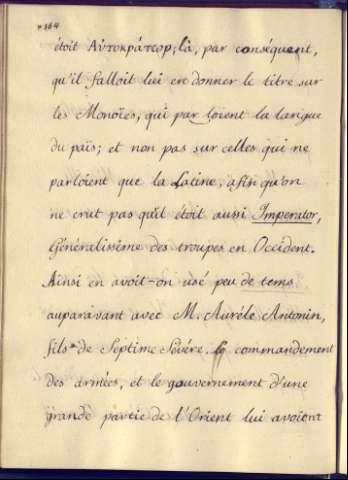 *364
étoit Αὐτοκράτεορ; là, par conséquent,
qu'il falloit lui en donner le titre sur
les Monoies, qui parloient la langue
du païs; et non pas sur celles qui ne
parloient que la Latine, afin qu'on
ne crut pas qu'il étoit aussi Imperator,
Généralissime des troupes en Occident.
Ainsi en avoit-on usé peu de tems
auparavant avec M. Auréle Antonin,
fils de Septime Sévére. le commandement
des armées, et le gouvernement d'une
grande partie de l'Orient lui avoient